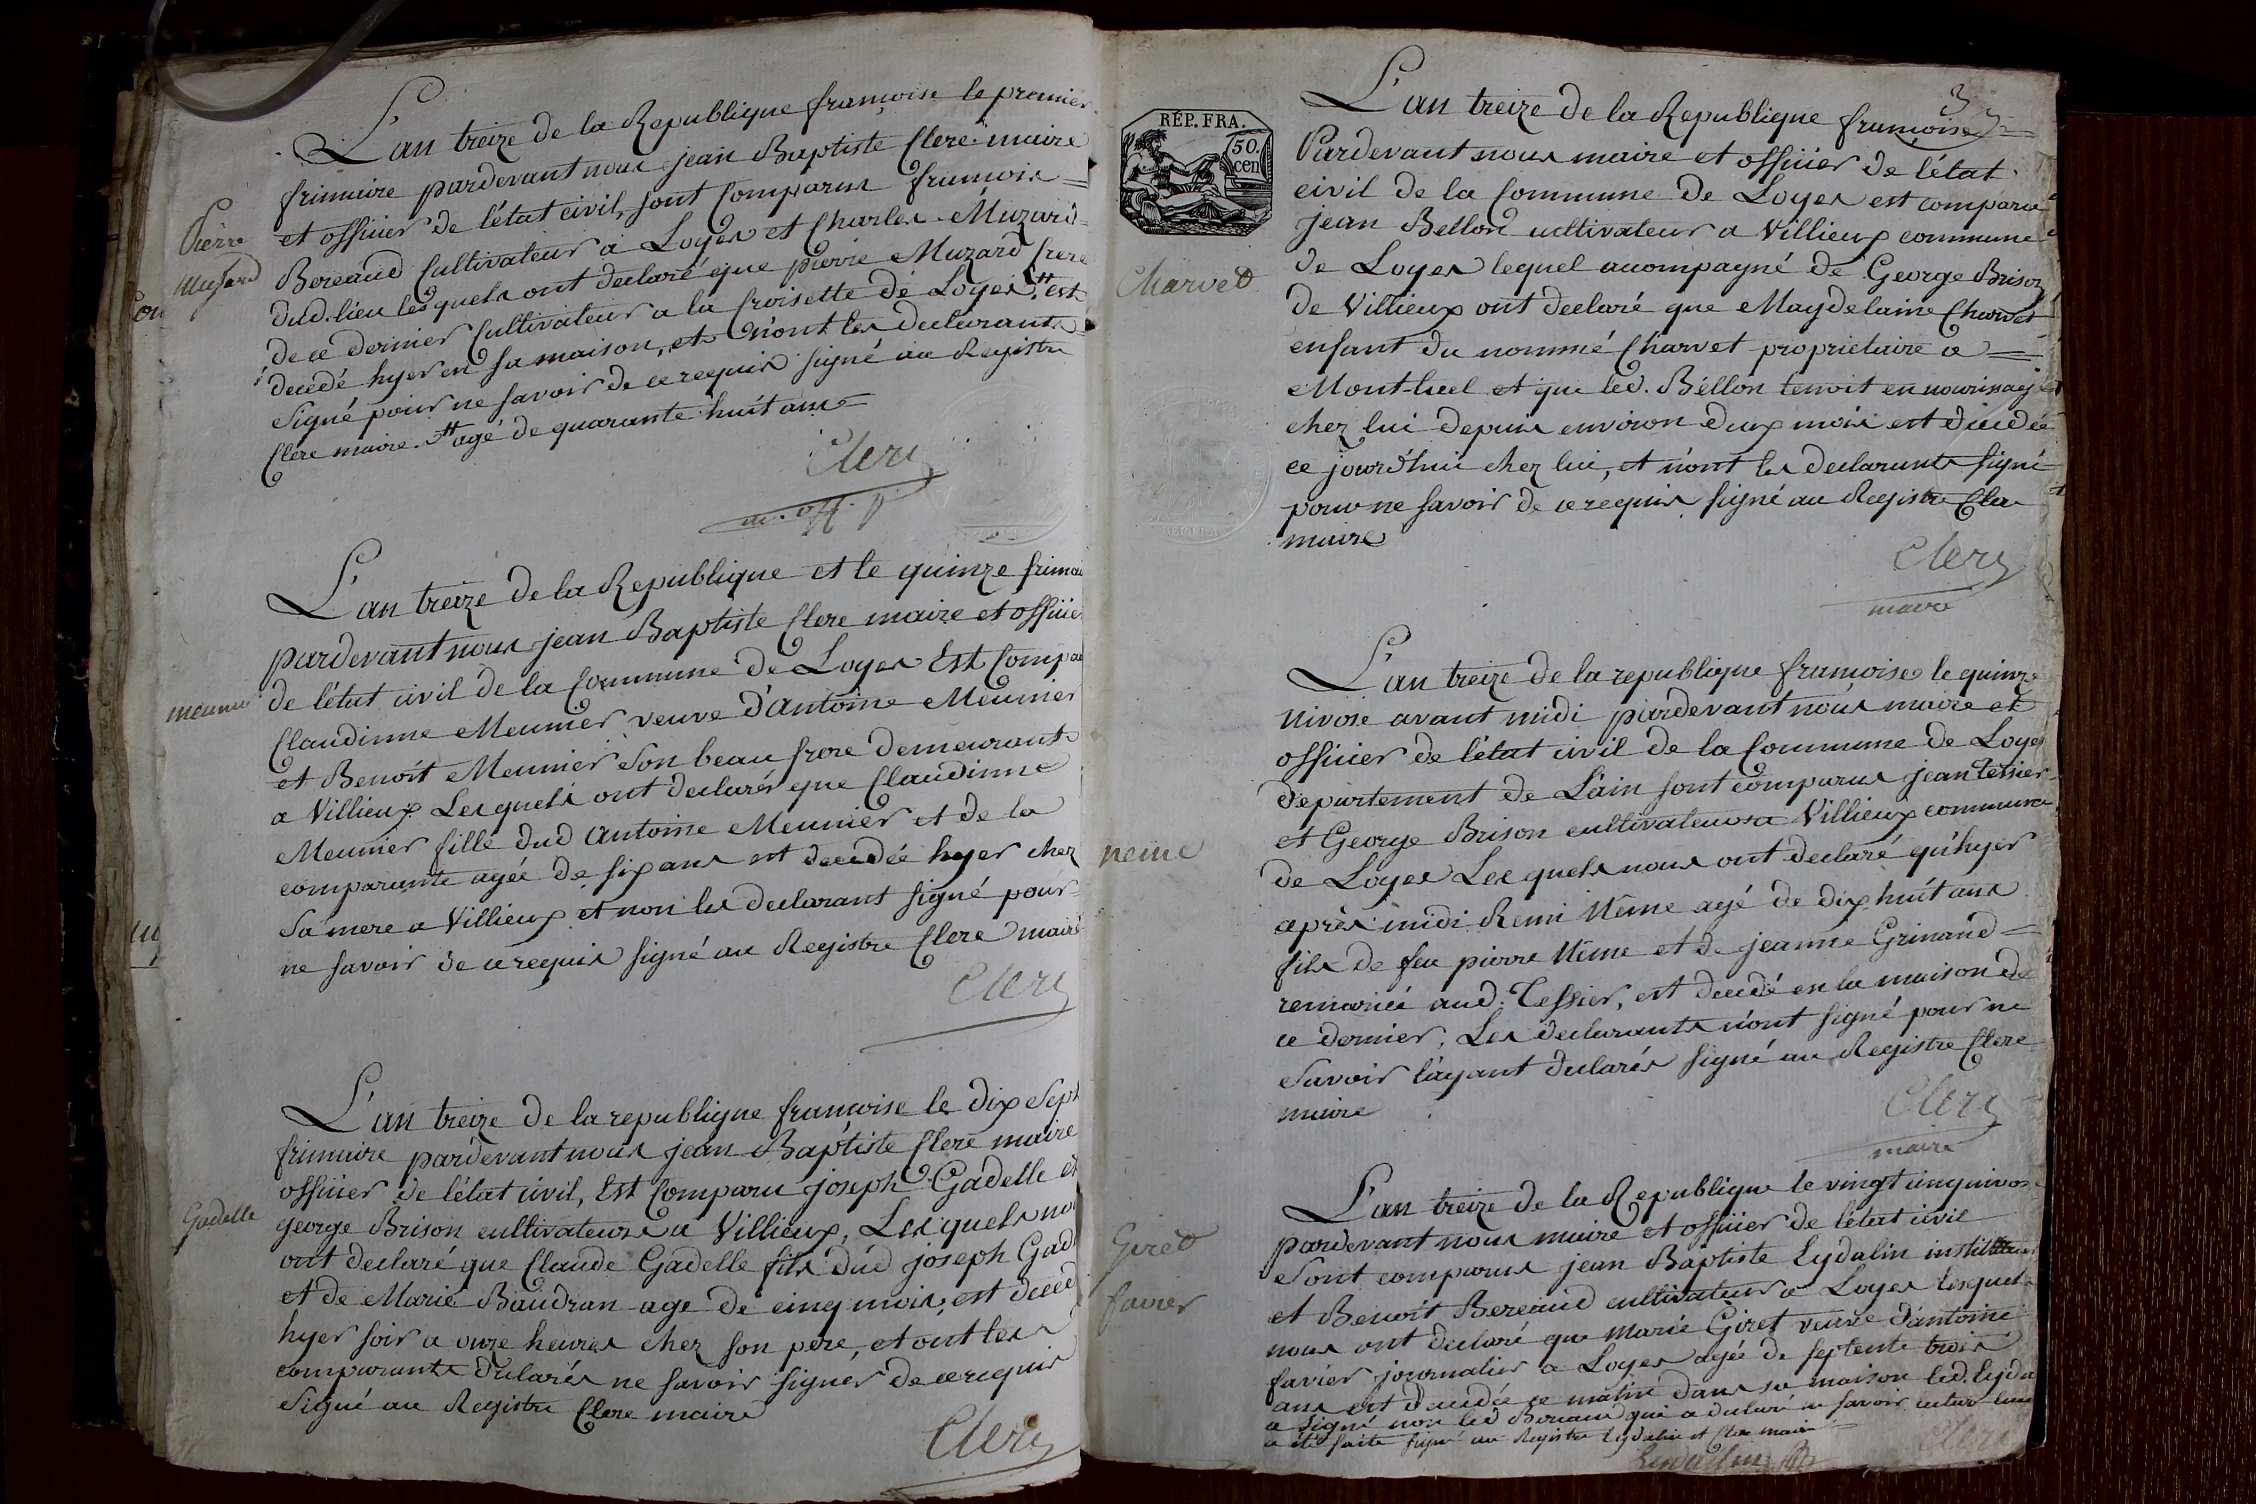 L'an treize de la Republique françoise le premier
frimaire pardevant nous jean Baptiste Clere maire
et officier de l'état civil, sont Comparus françois =
Pierre
Muzard
Bereaud Cultivateur a Loyes et Charles Muzard
dud. lieu lesquels ont declaré que pierre Muzard frere
de ce dernier Cultivateur a la Croisette de Loyes # est
decedé hyer en sa maison, et n'ont les declarants
signé pour ne savoir de ce requis signé au Registre
Clere maire. # agé de quarante huit ans =
Clere
m. off. p.
L'an treize de la Republique et le quinze frimai
pardevant nous jean Baptiste Clere maire et officie
de l'état civil de la Commune de Loyes Est Compa
meunier
Claudinne Meunier veuve d'Antoine Meunier
et Benoit Meunier son beau frere demeurant
a Villieux Lesquels ont declarés que Claudinne
Meunier fille dud Antoine Meunier et de la
comparante agée de six ans est decedée hyer chez
sa mere a Villieux et non les declarant signé pour
ne savoir de ce requis signé au Registre Clere maire
Clere
L'an treize de la republique françoise le dix sept
frimaire pardevant nous jean Baptiste Clere maire
officier de l'état civil, Est Comparu joseph Gadelle et
Gadelle
george Brison cultivateurs a Villieux, Lesquels no
ont declaré que Claude Gadelle fils dud joseph Gad
et de Marie Baudran age de cinq mois, est deced
hyer soir a onze heures chez son pere, et ont les
comparants declarés ne savoir signer de ce requis
signé au Registre Clere maire
Clere
3
RÉP. FRA.
50.
cen
L'an treize de la Republique françoise =
Pardevant nous maire et officier de l'état
civil de la Commune de Loyes est comparu
jean Bellon cultivateur a Villieux commune
Charvet
de Loyes lequel acompagné de George Brison
de Villieux ont declaré que Magdelaine Charvet
enfant du nommé Charvet proprietaire a =
Mont-luel et que led. Bellon tenoit en nourissage
chez lui depuis environ deux mois est decedée
ce jourd'hui chez lui, et n'ont les declarants signé
pour ne savoir de ce requis signé au Registre Clere
maire
Clere
maire
L'an treize de la republique françoise le quinze
nivose avant midi pardevant nous maire et
officier de l'état civil de la Commune de Loyes
departement de L'ain sont comparus jean Tessier
et George Brison cultivateurs a Villieux commune
neme
de Loyes Lesquels nous ont declaré qu'hyer
après midi Remi Neme agé de dix huit ans
fils de feu pierre Neme et de jeanne Grinand =
remariée aud. Tessier, est decedé en la maison de
ce dernier. Les declarants n'ont signé pour ne
savoir l'ayant declarés signé au Registre Clere
maire
Clere
maire
L'an treize de la Republique le vingt cinq nivose
pardevant nous maire et officier de l'état civil
sont comparus jean Baptiste Lydalin instituteur
Giret
favier
et Benoit Bereaud cultivateur a Loyes lesquels
nous ont declaré que Marie Giret veuve d'antoine
favier journalier a Loyes agée de septente trois
ans est decedée ce matin dans sa maison led. Lyda
a signé non led Bereaud qui a declaré ne savoir lecture lui
a été faite signé au Registre Lydalin et Clere maire
Lydalin
Clere